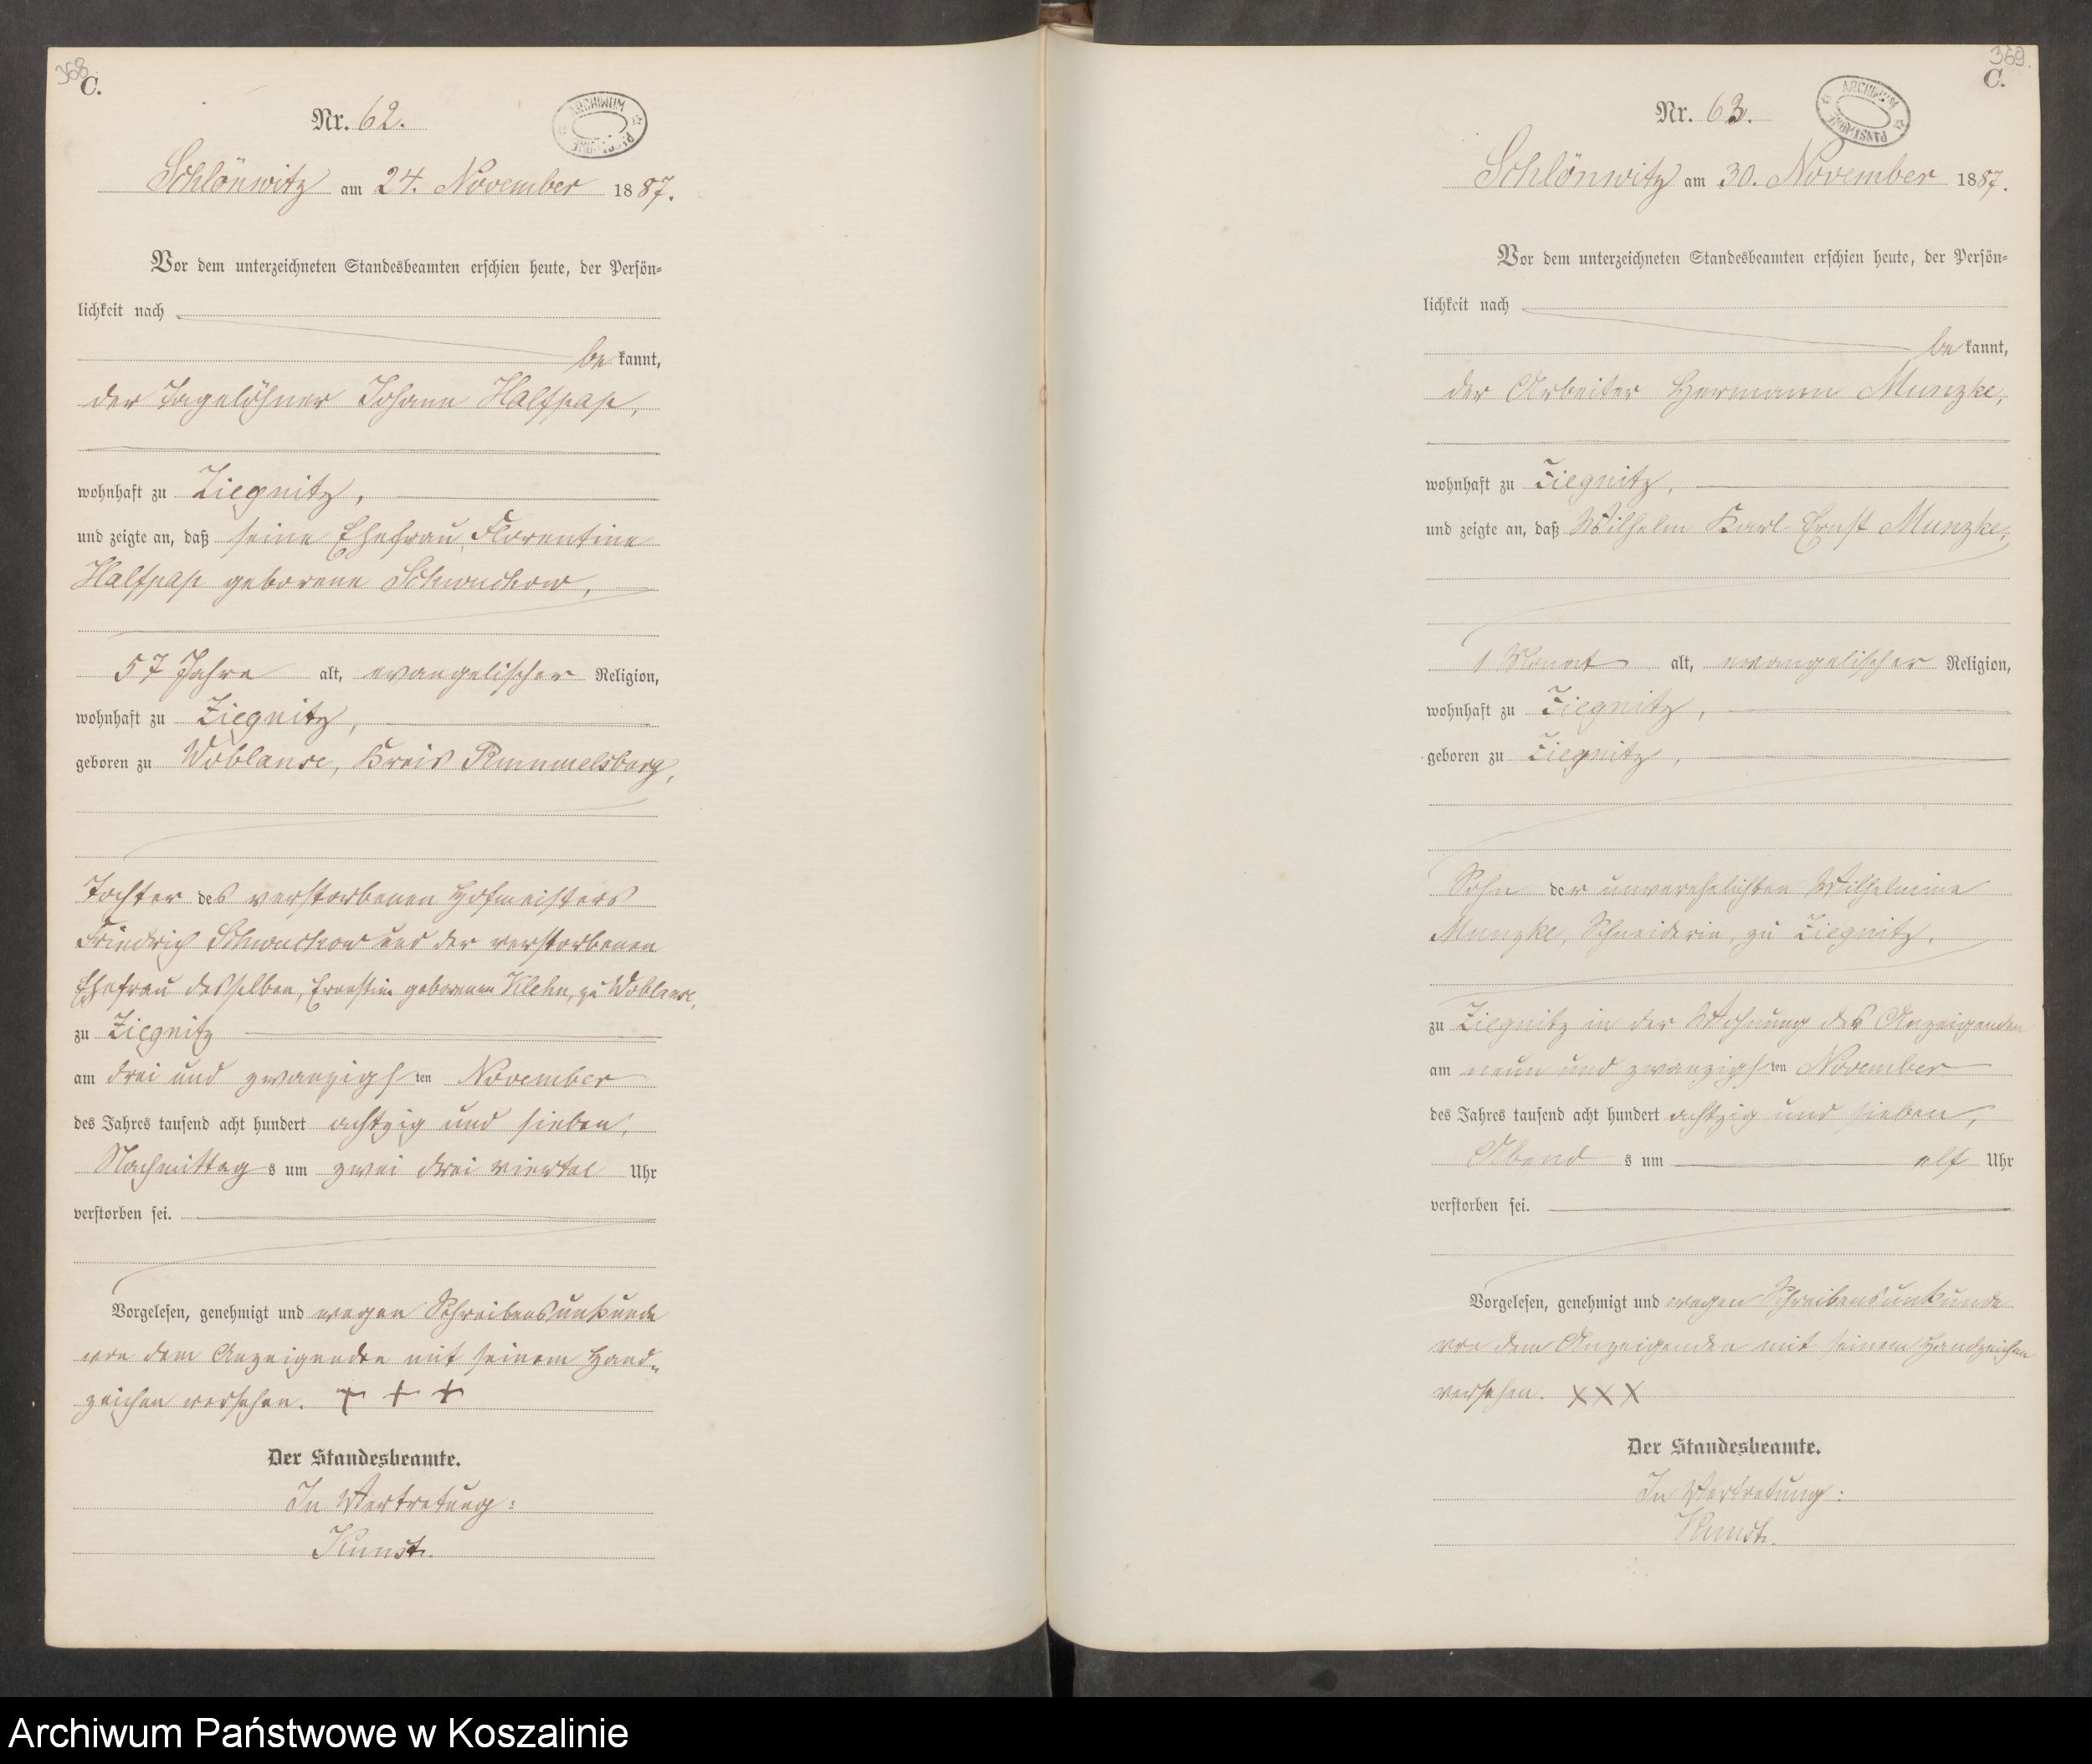 368
C.
Nr. 62.
ARCHIWUM
Schlönwitz am 24. November 1887.
Vor dem unterzeichneten Standesbeamten erschien heute, der Persön-
lichkeit nach
be kannt,
der Tagelöhner Johann Halfpap,
wohnhaft zu Ziegnitz,
und zeigte an, daß seine Ehefrau, Florentine
Halfpap geborene Schwuchow,
57 Jahre alt, evangelischer Religion,
wohnhaft zu Ziegnitz,
geboren zu Woblanse, Kreis Rummelsburg,
Tochter des verstorbenen Hofmeisters
Friedrich Schwuchow und der verstorbenen
Ehefrau desselben, Ernestine geborenen Klehn, zu Woblanse,
zu Ziegnitz
am drei und zwanzigsten November
des Jahres tausend acht hundert achtzig und sieben,
Nachmittags um zwei drei viertel Uhr
verstorben sei.
Vorgelesen, genehmigt und wegen Schreibensunkunde
von dem Anzeigenden mit seinem Hand-
zeichen versehen. + + +
Der Standesbeamte.
In Vertretung:
369.
C.
Nr. 63.
ARCHIWUM PAŃSTWOWE
Schlönwitz am 30. November 1887.
Vor dem unterzeichneten Standesbeamten erschien heute, der Persön-
lichkeit nach
be kannt,
der Arbeiter Hermann Munzke,
wohnhaft zu Ziegnitz,
und zeigte an, daß Wilhelm Karl Ernst Munzke,
1 Monat alt, evangelischer Religion,
wohnhaft zu Ziegnitz,
geboren zu Ziegnitz,
Sohn der unverehelichten Wilhelmine
Munzke, Schneiderin, zu Ziegnitz,
zu Ziegnitz in der Wohnung des Anzeigenden
am neun und zwanzigsten November
des Jahres tausend acht hundert achtzig und sieben,
Abends um elf Uhr
verstorben sei.
Vorgelesen, genehmigt und wegen Schreibensunkunde
von dem Anzeigenden mit seinem Handzeichen
versehen. XXX
Der Standesbeamte.
In Vertretung:
Archiwum Państwowe w Koszalinie